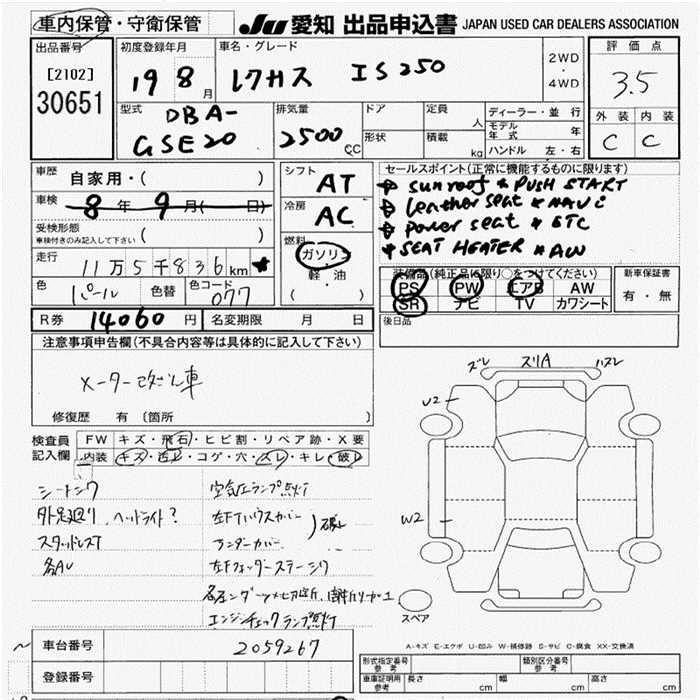 車内保管・守衛保管
JU 愛知 出品申込書 JAPAN USED CAR DEALERS ASSOCIATION
出品番号
[2102]
30651
初度登録年月
19 8月
車名・グレード
レクサス IS250
2WD
・
4WD
評価点
3.5
外装 内装
C C
型式
DBA-
GSE20
排気量
2500cc
ドア
形状
定員 人
積載 kg
ディーラー・並行
モデル年式 年
ハンドル 左・右
車歴
自家用・( )
車検
8年 9月( 日)
受検形態
車検付きのみ記入して下さい ( )
走行
11万5千836km
色
パール
色替
色コード
077
シフト
AT
冷房
AC
燃料
ガソリン
軽・油
( )
セールスポイント(正常に機能するものに限ります)
sunroof * PUSH START
leather seat * NAVi
power seat * ETC
* SEAT HEATER * AW
装備品(純正品に限り○をつけてください)
PS PW エアB AW
SR ナビ TV カワシート
新車保証書
有・無
後日品
R券 14060円
名変期限 月 日
注意事項申告欄(不具合内容等は具体的に記入して下さい)
メーター改ざん車
修復歴 有 〔箇所 〕
検査員
記入欄
FW キズ・飛石・ヒビ割・リペア跡・X要
内装 キズ・汚レ・コゲ・穴・スレ・キレ・破レ
シートシワ
外足廻り、ヘッドライト?
スタッドレスT
各AU
空気圧ランプ点灯
左FTハウスカバー
アンダーカバー
破レ
左Fフェンダーステーシワ
エンジンチェックランプ点灯
ズレ スリA ハズレ
U2
W2
スペア
A-キズ E-エクボ U-凹み W-補修跡 S-サビ C-腐食 XX-交換済
車台番号
2059267
登録番号
形式指定番号
参考
類別区分番号
参考
車庫証明用
参考
長さ cm
幅 cm
高さ cm